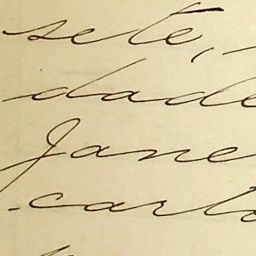 sete,
dade
Jane
carto